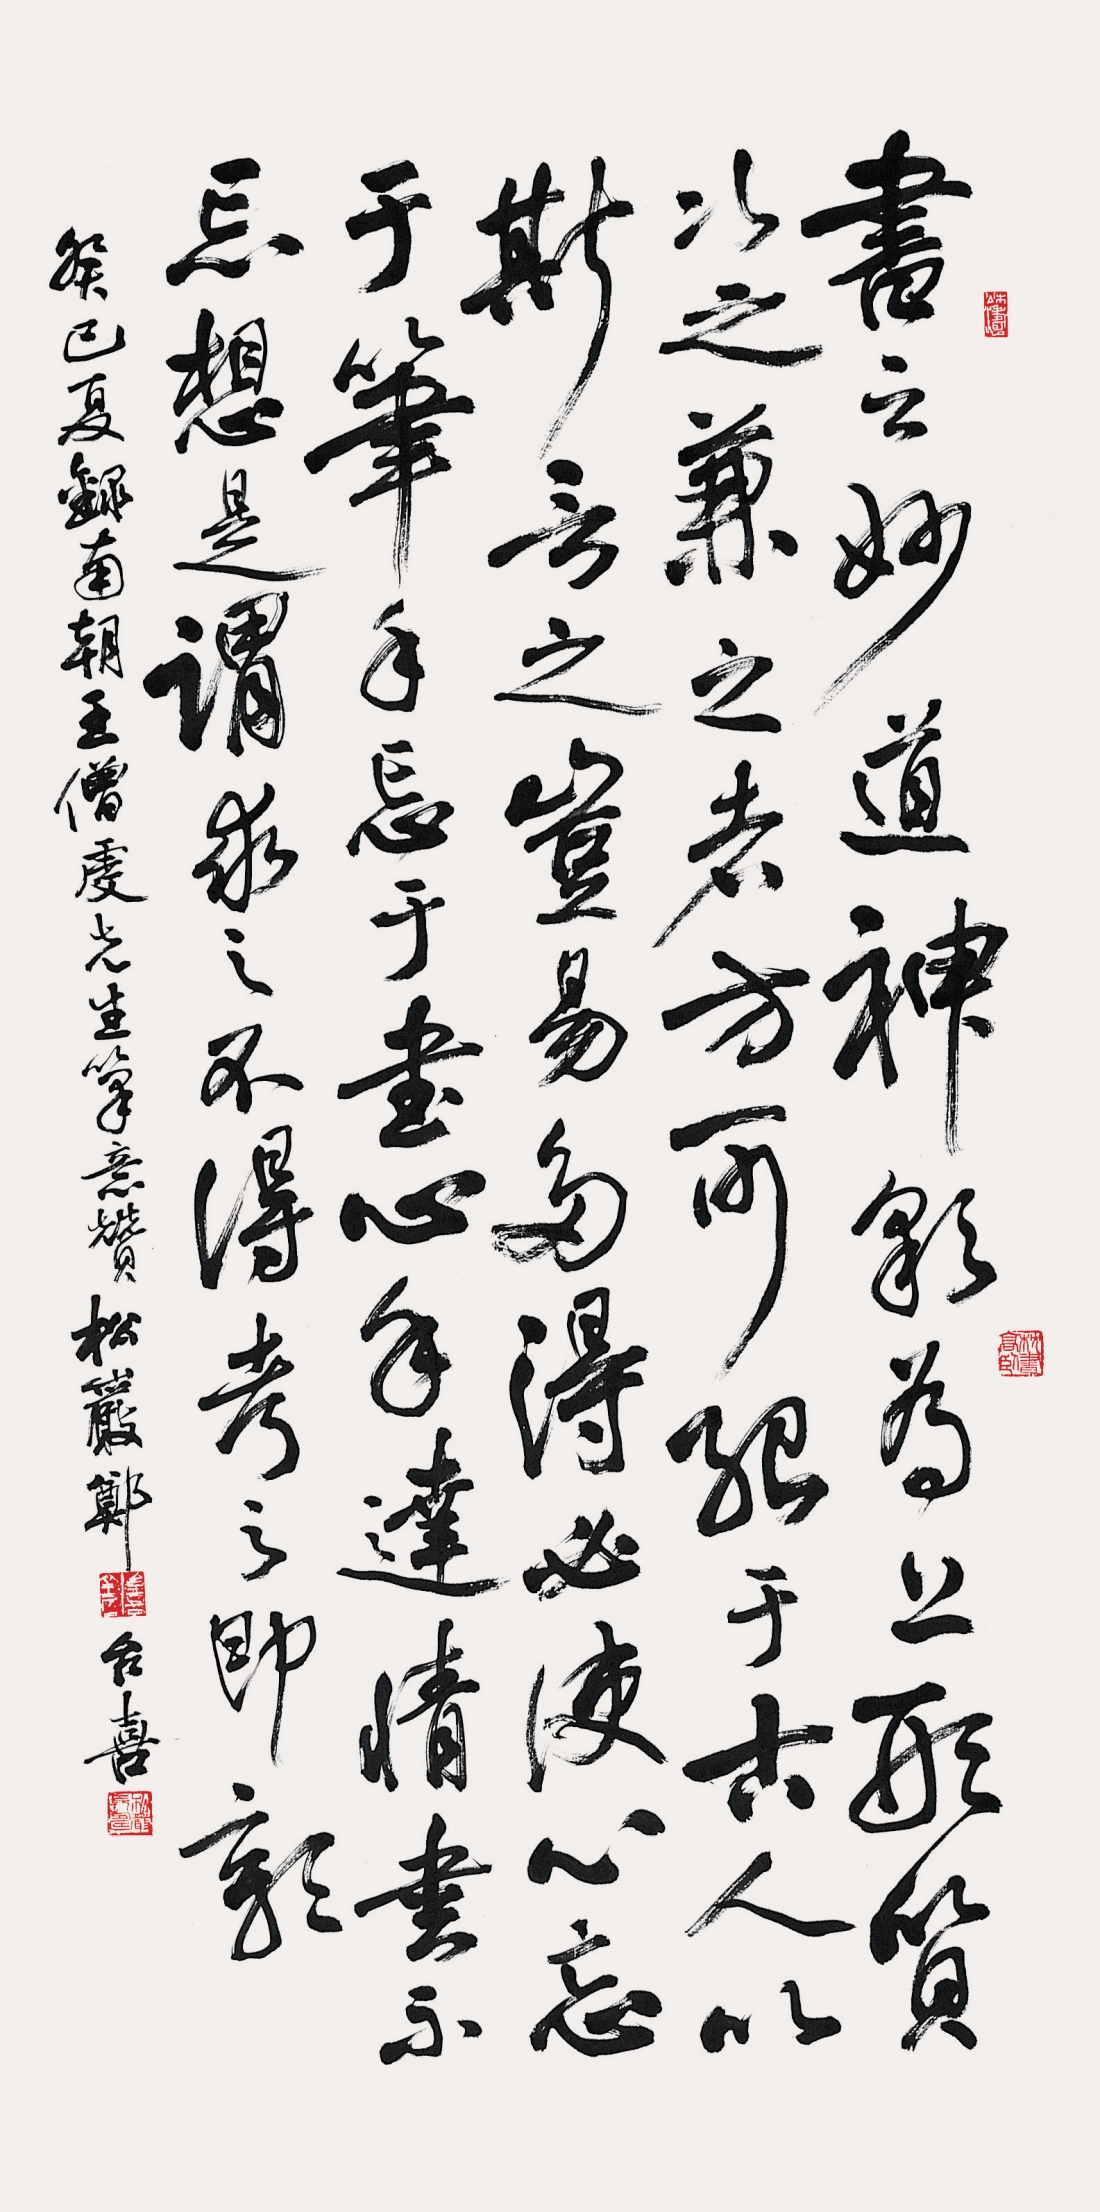 書之妙道神彩為上形質
次之兼之者方可紹于古人以
斯言之豈易多得必使心忘
于筆手忘于書心手達情書不
忘想是謂求之不得考之即彰
癸巳夏錄南朝王僧虔先生筆意贊松巖鄭
台喜